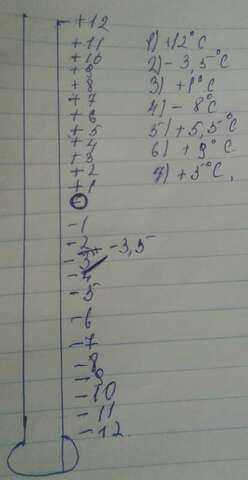 +12
+11
+10
+9
+8
+7
+6
+5
+4
+3
+2
+1
0
-1
-2
-3 -3,5
-4
-5
-6
-7
-8
-9
-10
-11
-12
1) +12°C
2) -3,5°C
3) +1°C
4) -8°C
5) +5,5°C
6) +9°C
7) +5°C.